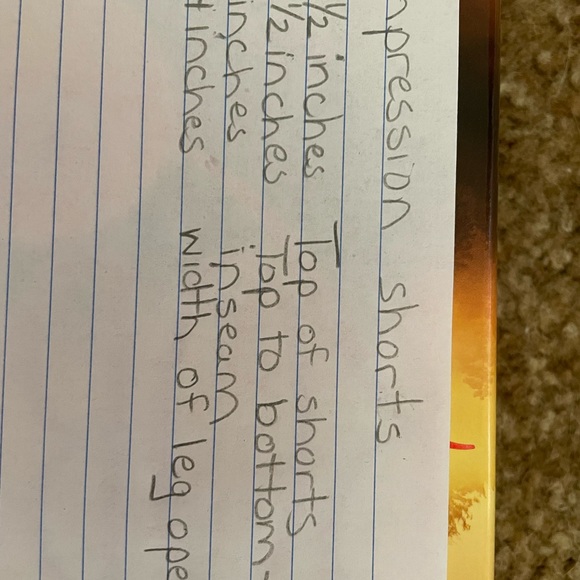 npression shorts
1/2 inches Top of shorts
1/2 inches Top to bottom-
inches inseam
inches width of leg ope